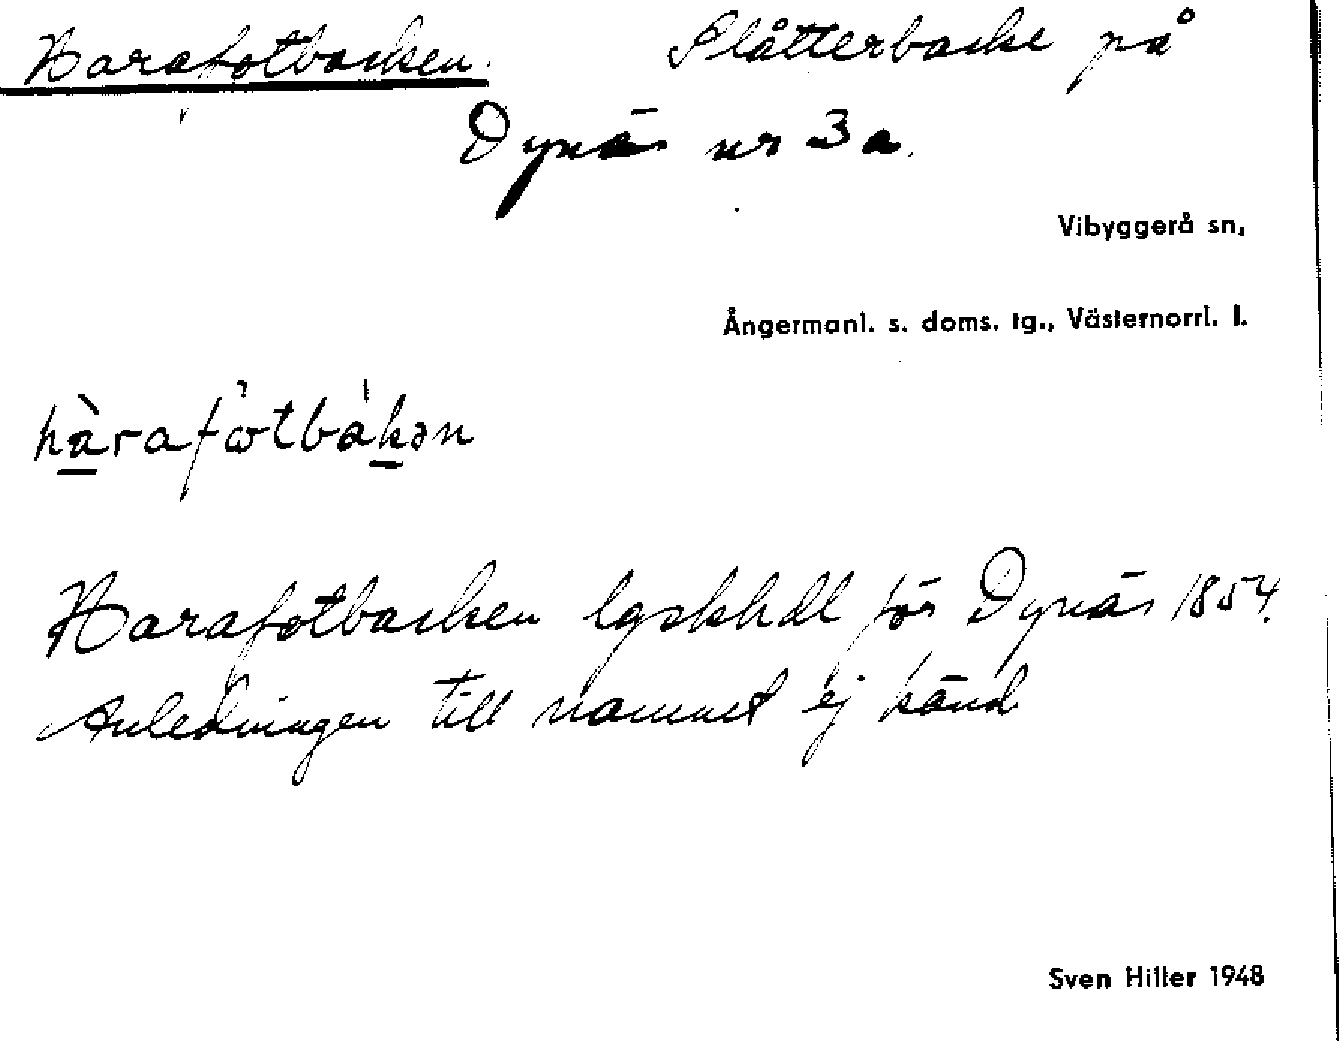 Harafotbacken. Slåtterbacke på
Dynäs nr 3a.
Vibyggerå sn,
Ångermanl. s. doms. tg., Västernorrl. l.
hàrafòtbákən
Harafotbacken lgskhdl för Dynäs 1854.
Anledningen till namnet ej känd
Sven Hiller 1948